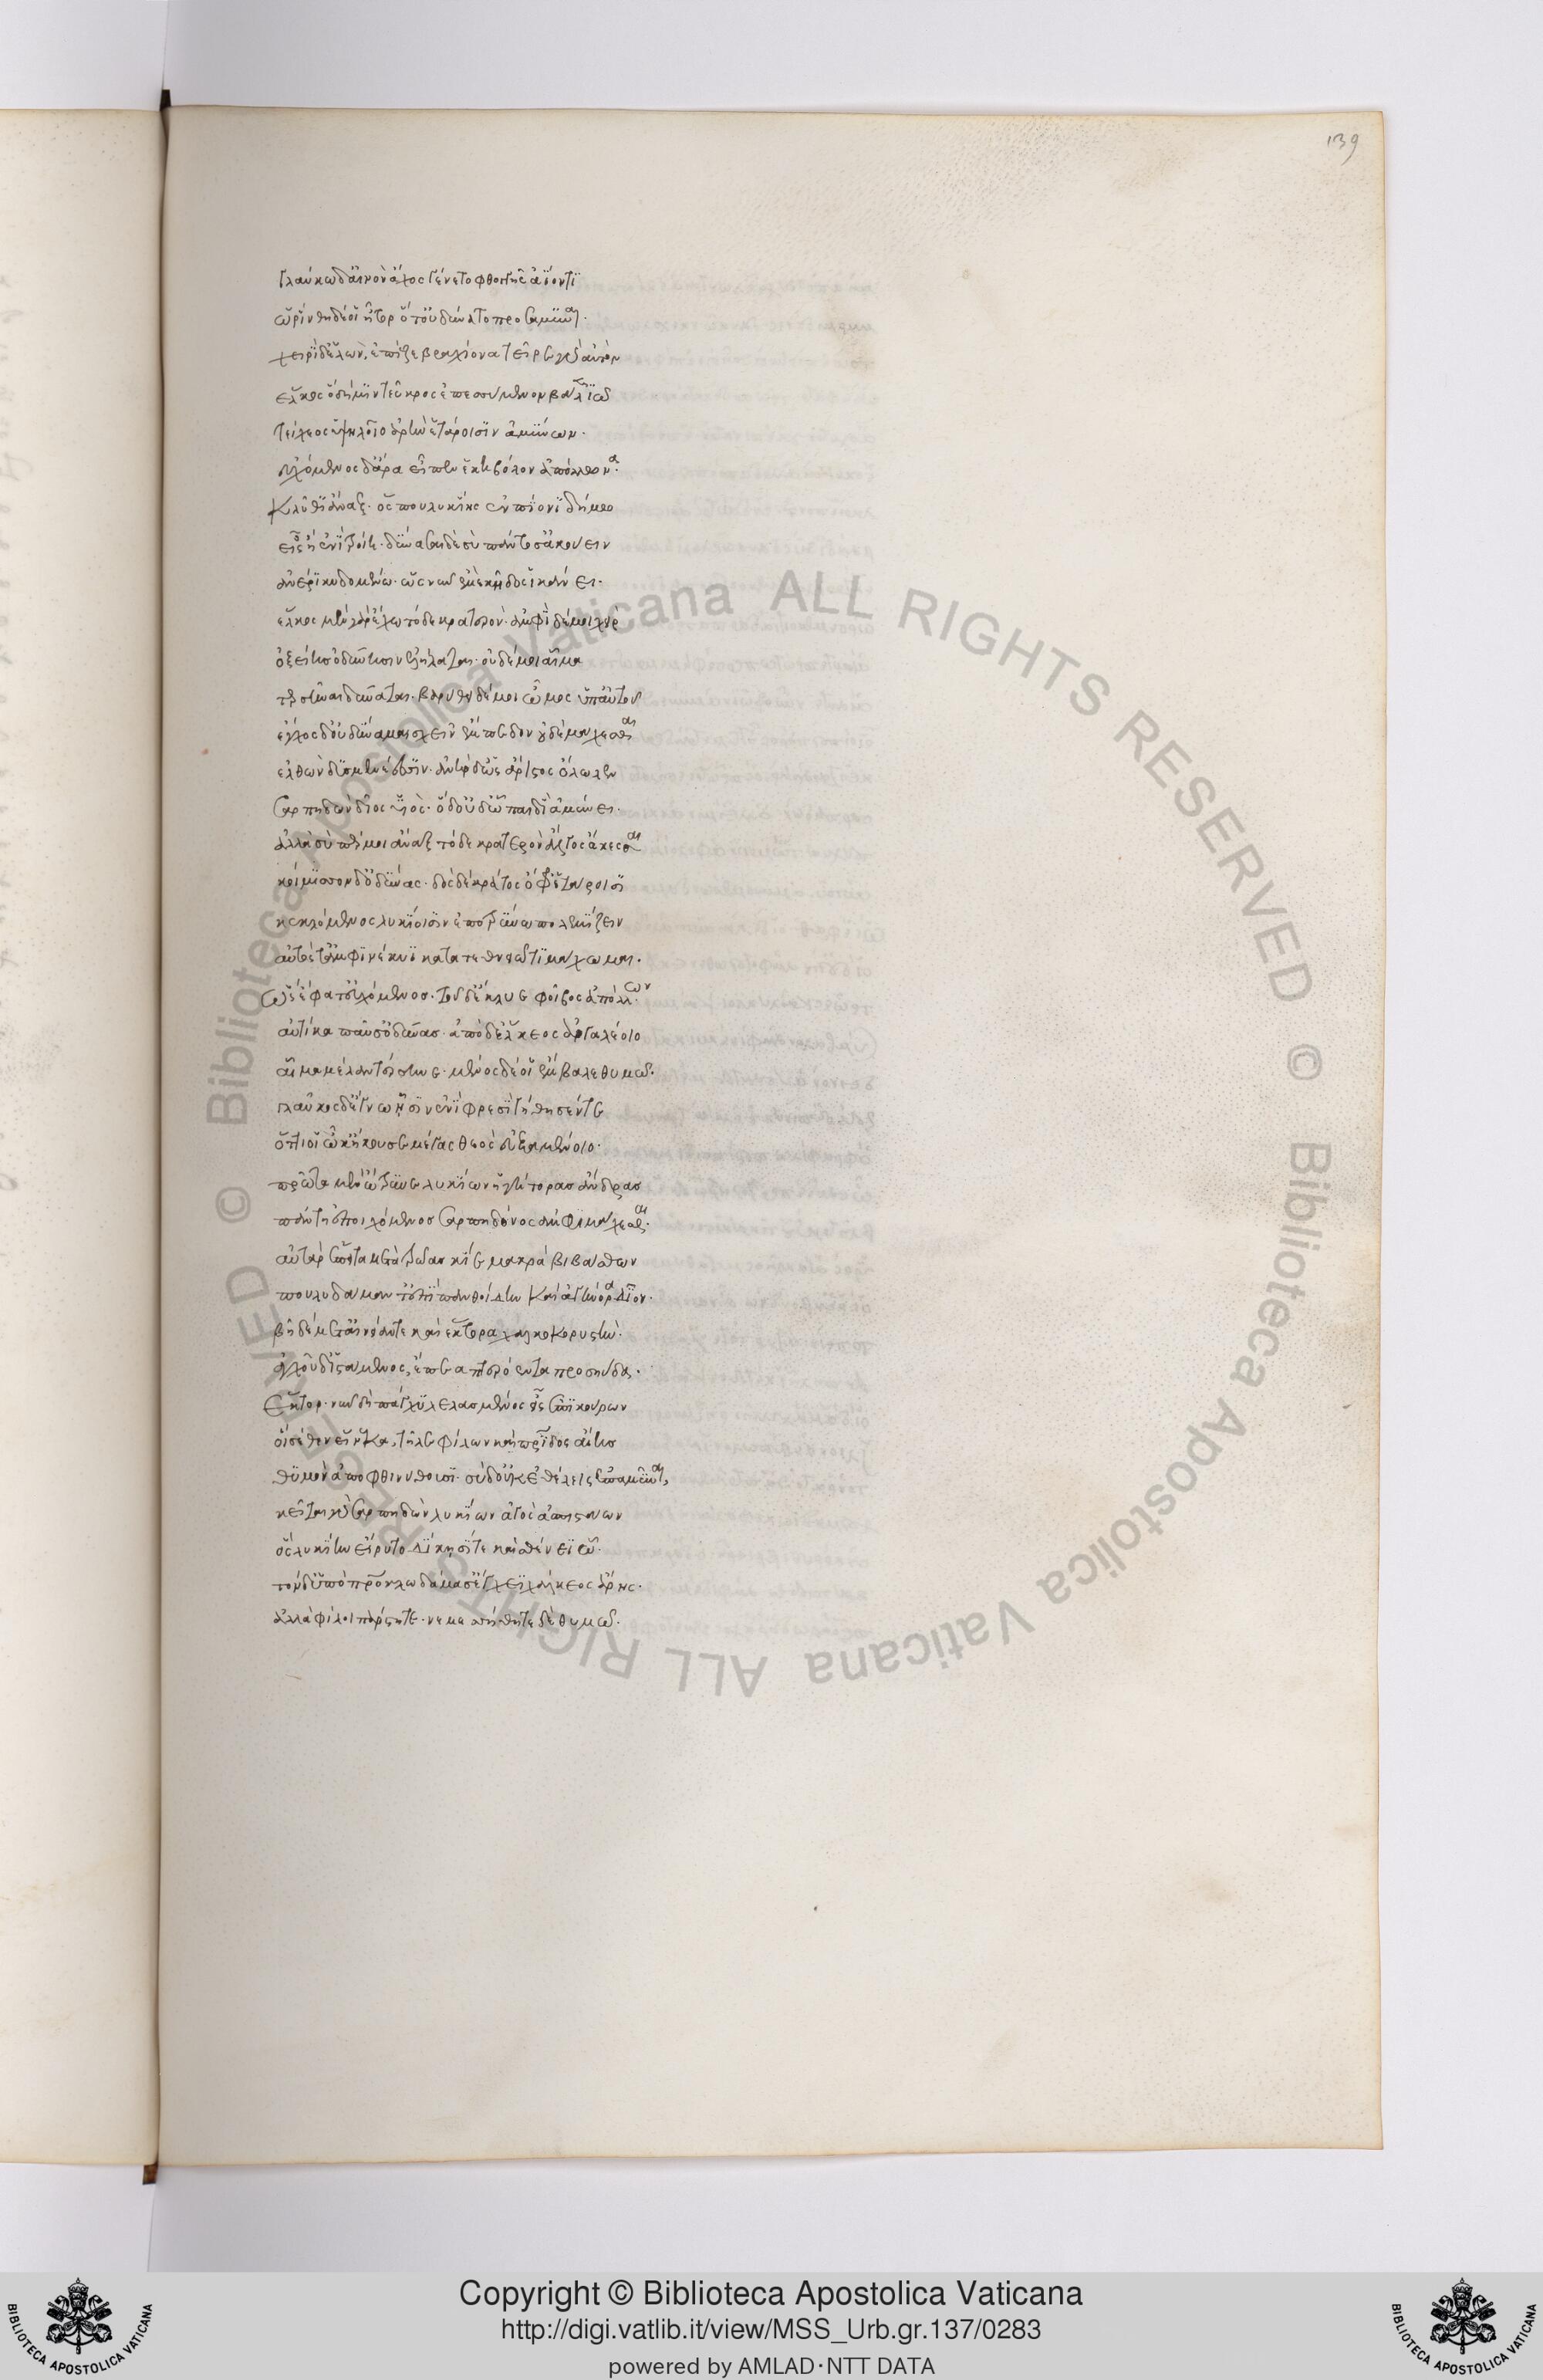 139
γλαύκω δ' αἰνὸν ἄχος γένετο φθογγῆς ἀΐοντι
ὠρίνθη δέ οἱ ἦτορ ὅτ' οὐ δύνατο προσαμῦναι·
χειρὶ δ' ἑλὼν, ἐπίεζε βραχίονα τεῖρε γὰρ αὐτὸν
ἕλκος ὃ δή μιν τεῦκρος ἐπεσσύμενον βάλεν ἰῶ
τείχεος ὑψηλοῖο ἀρὴν ἑτάροισιν ἀμύνων·
εὐχόμενος δ' ἄρα εἶπεν ἑκηβόλον ἀπόλλωνα·
Κλῦθι ἄναξ· ὅς που λυκίης ἐν πίονι δήμω
εἶς ἢ ἐνὶ τροίη· δύνασαι δὲ σὺ πάντοσ' ἀκούειν
ἀνέρι κηδομένω· ὡς νῦν ἐμὲ κῆδος ἱκάνει·
ἕλκος μὲν γὰρ ἔχω τόδε καρτερόν· ἀμφὶ δέ μοι χεὶρ
ὀξείησ' ὀδύνησιν ἐλήλαται· οὐδέ μοι αἷμα
τερσῆναι δύναται· βαρύθει δέ μοι ὦμος ὑπ' αὐτοῦ
ἔγχος δ' οὐ δύναμαι σχεῖν ἔμπεδον οὐδὲ μάχεσθαι
ἐλθὼν δυσμενέεσσιν· ἀνὴρ δ' ὤριστος ὄλωλεν
Σαρπηδὼν διὸς υἱός· ὃ δ' οὐδ' ᾧ παιδὶ ἀμύνει·
ἀλλὰ σύ πέρ μοι ἄναξ τόδε καρτερὸν ἕλκος ἄκεσσαι
κοίμησον δ' ὀδύνας· δὸς δὲ κράτος ὄφρ' ἑτάροισι
κεκλόμενος λυκίοισιν ἐποτρύνω πολεμίζειν
αὐτός τ' ἀμφὶ νέκυι κατατεθνηῶτι μάχωμαι·
Ὣς ἔφατ' εὐχόμενος· τοῦ δ' ἔκλυε φοῖβος ἀπόλλων·
αὐτίκα παῦσ' ὀδύνας· ἀπὸ δ' ἕλκεος ἀργαλέοιο
αἷμα μέλαν τέρσηνε· μένος δέ οἱ ἔμβαλε θυμῶ·
γλαῦκος δ' ἔγνω ᾗσιν ἐνὶ φρεσὶ γήθησέν τε
ὅττί οἱ ὦκ' ἤκουσε μέγας θεὸς εὐξαμένοιο·
πρῶτα μὲν ὤτρυνε λυκίων ἡγήτορας ἄνδρας
πάντη ἐποιχόμενος Σαρπηδόνος ἀμφιμάχεσθαι·
αὐτὰρ ἔπειτα μετὰ τρῶας κίε μακρὰ βιβάσθων
πουλυδάμαντ' ἔπι πανθοίδην καὶ ἀγήνορα δῖον·
βῆ δὲ μετ' αἰνείαν τε καὶ ἕκτορα χαλκοκορυστήν·
ἀγχοῦ δ' ἱστάμενος, ἔπεα πτερόεντα προσηύδα·
Ἕκτορ· νῦν δὴ πάγχυ λελασμένος εἶς ἐπικούρων
οἳ σέθεν εἵνεκα, τῆλε φίλων καὶ πατρίδος αἴης
θυμὸν ἀποφθινύθουσι· σὺ δ' οὐκ ἐθέλεις ἐπαμῦναι,
κεῖται σαρπηδὼν λυκίων ἀγὸς ἀσπιστάων
ὃς λυκίην εἴρυτο δίκησί τε καὶ σθένεϊ ᾧ·
τὸν δ' ὑπὸ πατρόκλω δάμασ' ἔγχεϊ χάλκεος ἄρης·
ἀλλὰ φίλοι πάρστητε· νεμεσσήθητε δὲ θυμῶ·
Copyright © Biblioteca Apostolica Vaticana
http://digi.vatlib.it/view/MSS_Urb.gr.137/0283
powered by AMLAD·NTT DATA